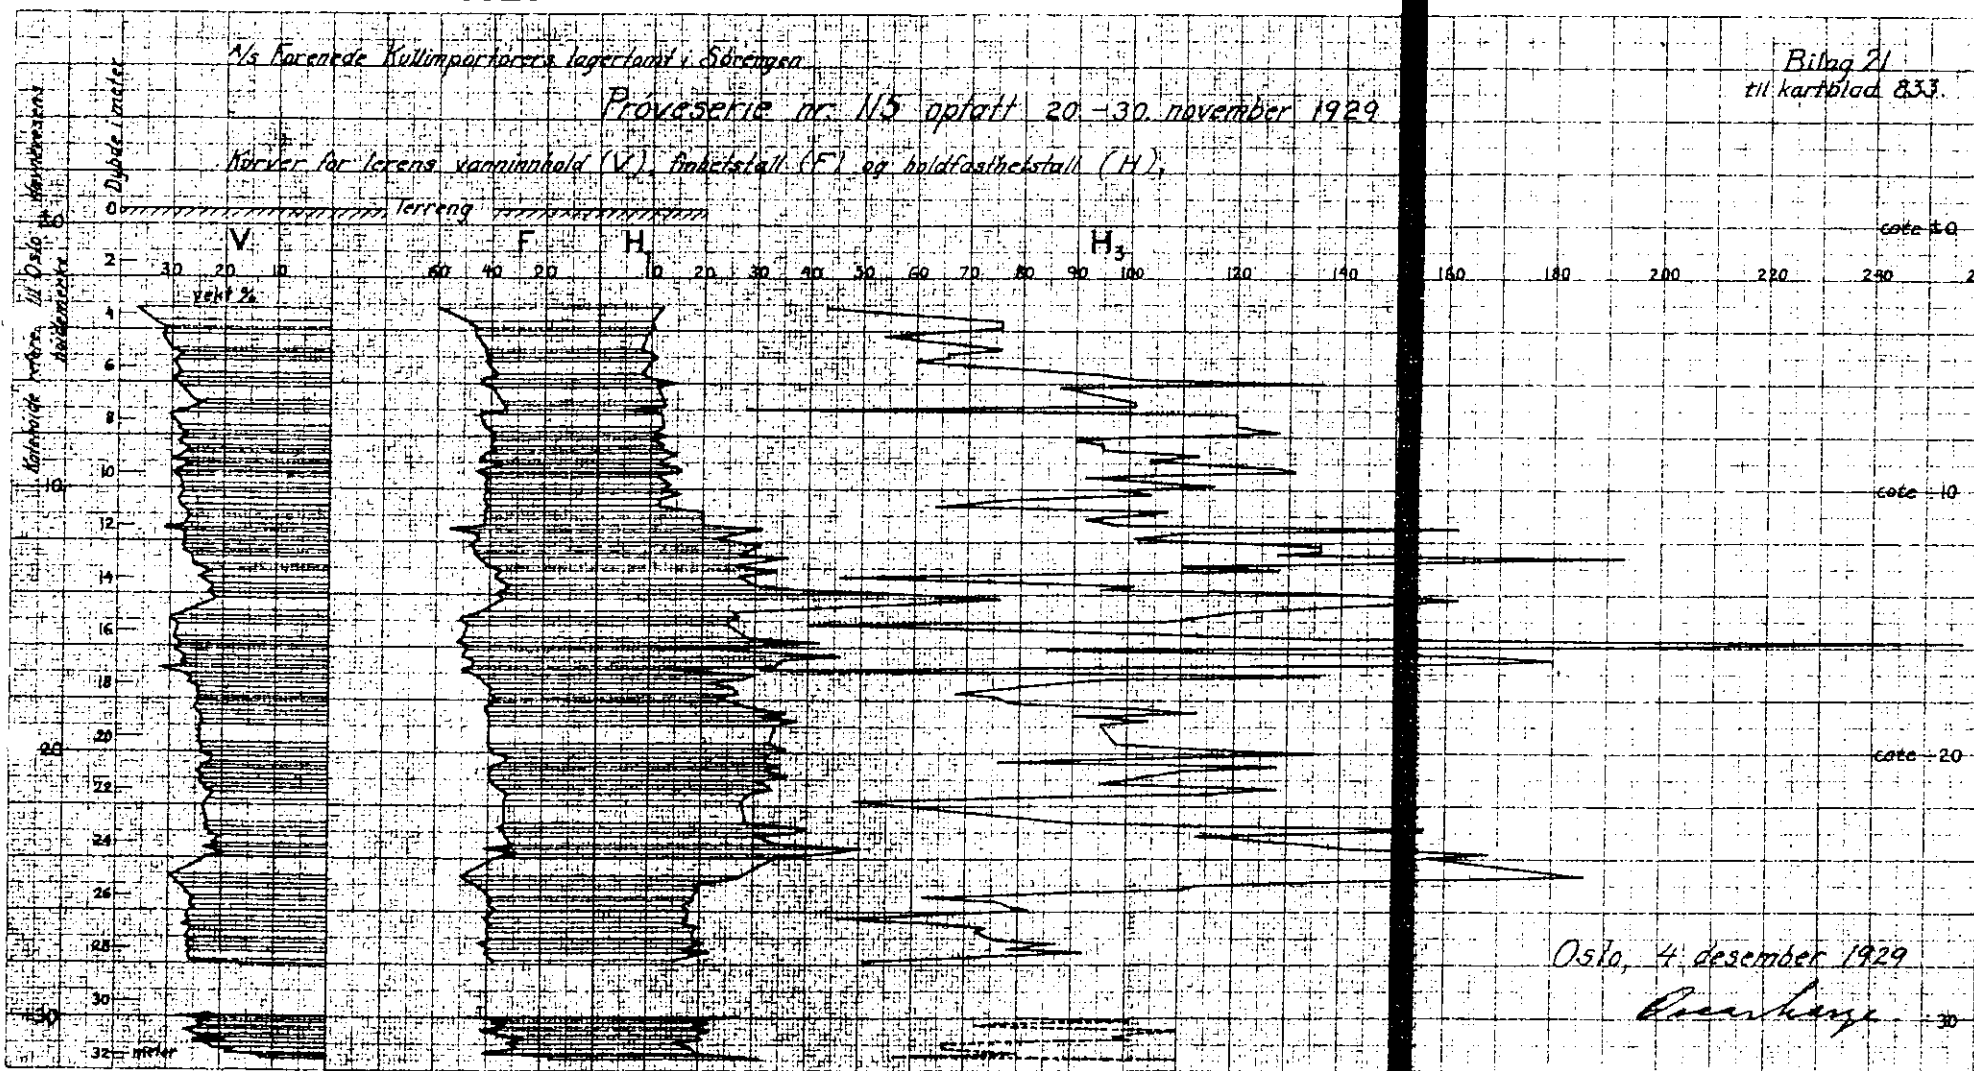 A/s Forenede Kullimportørers lagertomt i Sörengen
Bilag 21
til kartblad 833.
Pröveserie nr. N5 optatt 20.-30. november 1929
Kurver for lerens vanninnhold (V), finhetstall (F) og holdfasthetstall (H),
Dybde i meter
Kotehøide refere. til Oslo Havnevesens
höidemerke
0 Terreng
±0
cote ±0
V F H₁ H₃
2
30 20 10 60 40 20 10 20 30 40 50 60 70 80 90 100 120 130 160 180 200 220 250
vekt %
4
6
8
10
10 cote -10
12
14
16
18
20
20 cote -20
22
24
26
28
Oslo, 4. desember 1929
30
30
32 meter